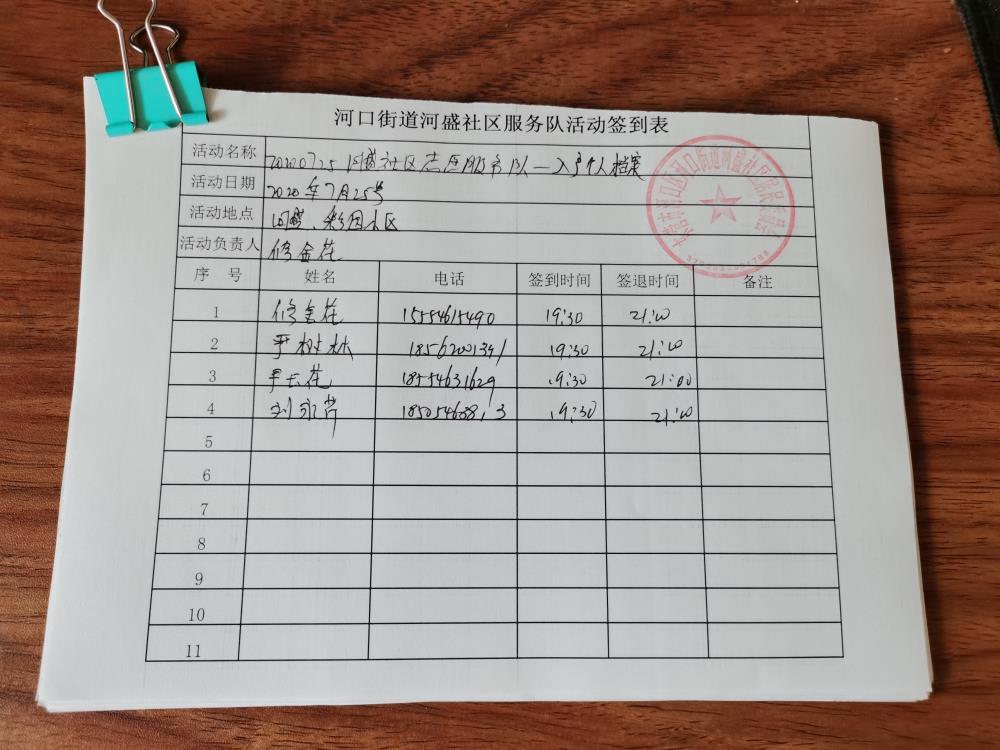 河口街道河盛社区服务队活动签到表
活动名称 20200725河盛社区志愿服务队—入户个人档案
活动日期 2020年7月25号
活动地点 河盛、彩园小区
活动负责人 修金花
序 号 姓名 电话 签到时间 签退时间 备注
1 修金花 15554615490 19:30 21:00
2 树林 19:30 21:00
3 花 18554631629 19:30 21:00
4 刘永 19:30 21:00
5
6
7
8
9
10
11